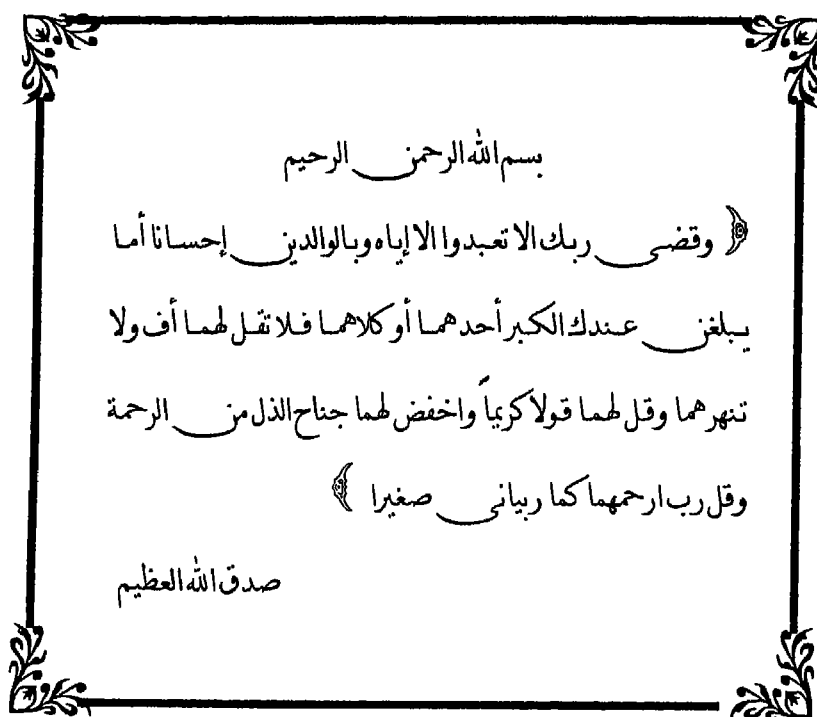 بسم الله الرحمن الرحيم
﴿ وقضى ربك الا تعبدوا الا إياه وبالوالدين إحسانا أما
يبلغن عندك الكبر أحدهما أو كلاهما فلا تقل لهما أف ولا
تنهرهما وقل لهما قولاً كريماً واخفض لهما جناح الذل من الرحمة
وقل رب ارحمهما كما ربيانى صغيرا ﴾
صدق الله العظيم